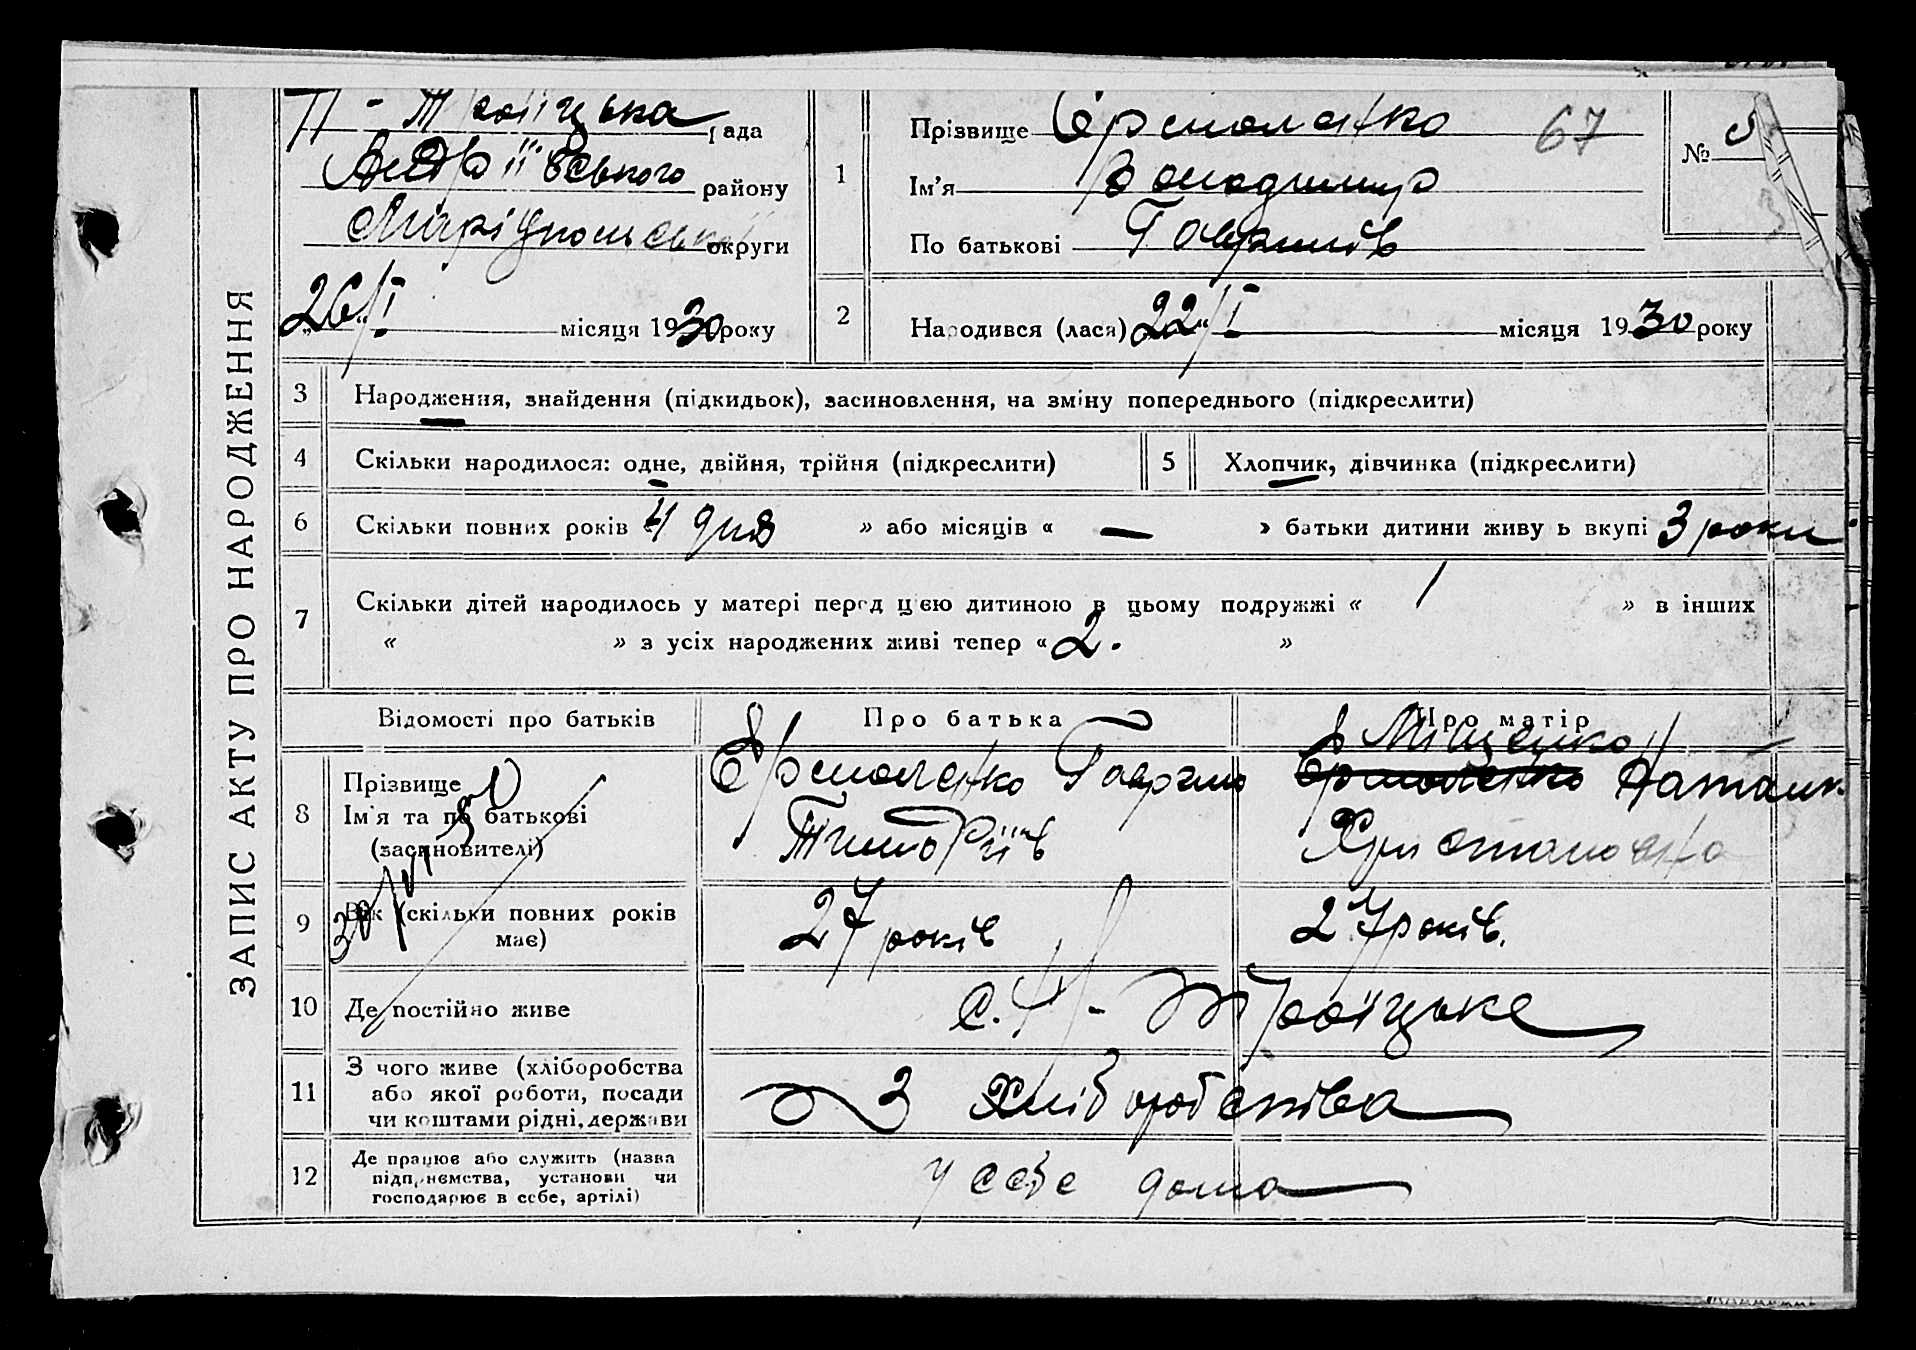 ЗАПИС АКТУ ПРО НАРОДЖЕННЯ
П-Троїцька рада
Андріївського району
Маріупольської округи
„26/I“ місяця 1930 року
1
Прізвище Єрмоленко 67
Ім'я Володимир
По батькові Гаврилів
№ 5
2
Народився (лася) „22/I“ місяця 1930 року
3 Народження, знайдення (підкидьок), засиновлення, на зміну попереднього (підкреслити)
4 Скільки народилося: одне, двійня, трійня (підкреслити)
5 Хлопчик, дівчинка (підкреслити)
6 Скільки повних років 4 дня » або місяців « — » батьки дитини живуть вкупі 3 роки
7 Скільки дітей народилось у матері перед цією дитиною в цьому подружжі « 1 » в інших
« » з усіх народжених живі тепер « 2. »
Відомості про батьків
Про батька
Про матір
8 Прізвище
Ім'я та по батькові
(засиновителі)
Єрмоленко Гаврило
Тимофіїв
Міщенко
Єрмоленко Наталк
Христановна
9 Вік (скільки повних років
має)
27 років
27 років.
10 Де постійно живе
с. Н-Троїцьке
11 З чого живе (хліборобства
або якої роботи, посади
чи коштами рідні, держави
З хліборобства
12 Де працює або служить (назва
підприємства, установи чи
господарює в себе, артілі)
у себе дома